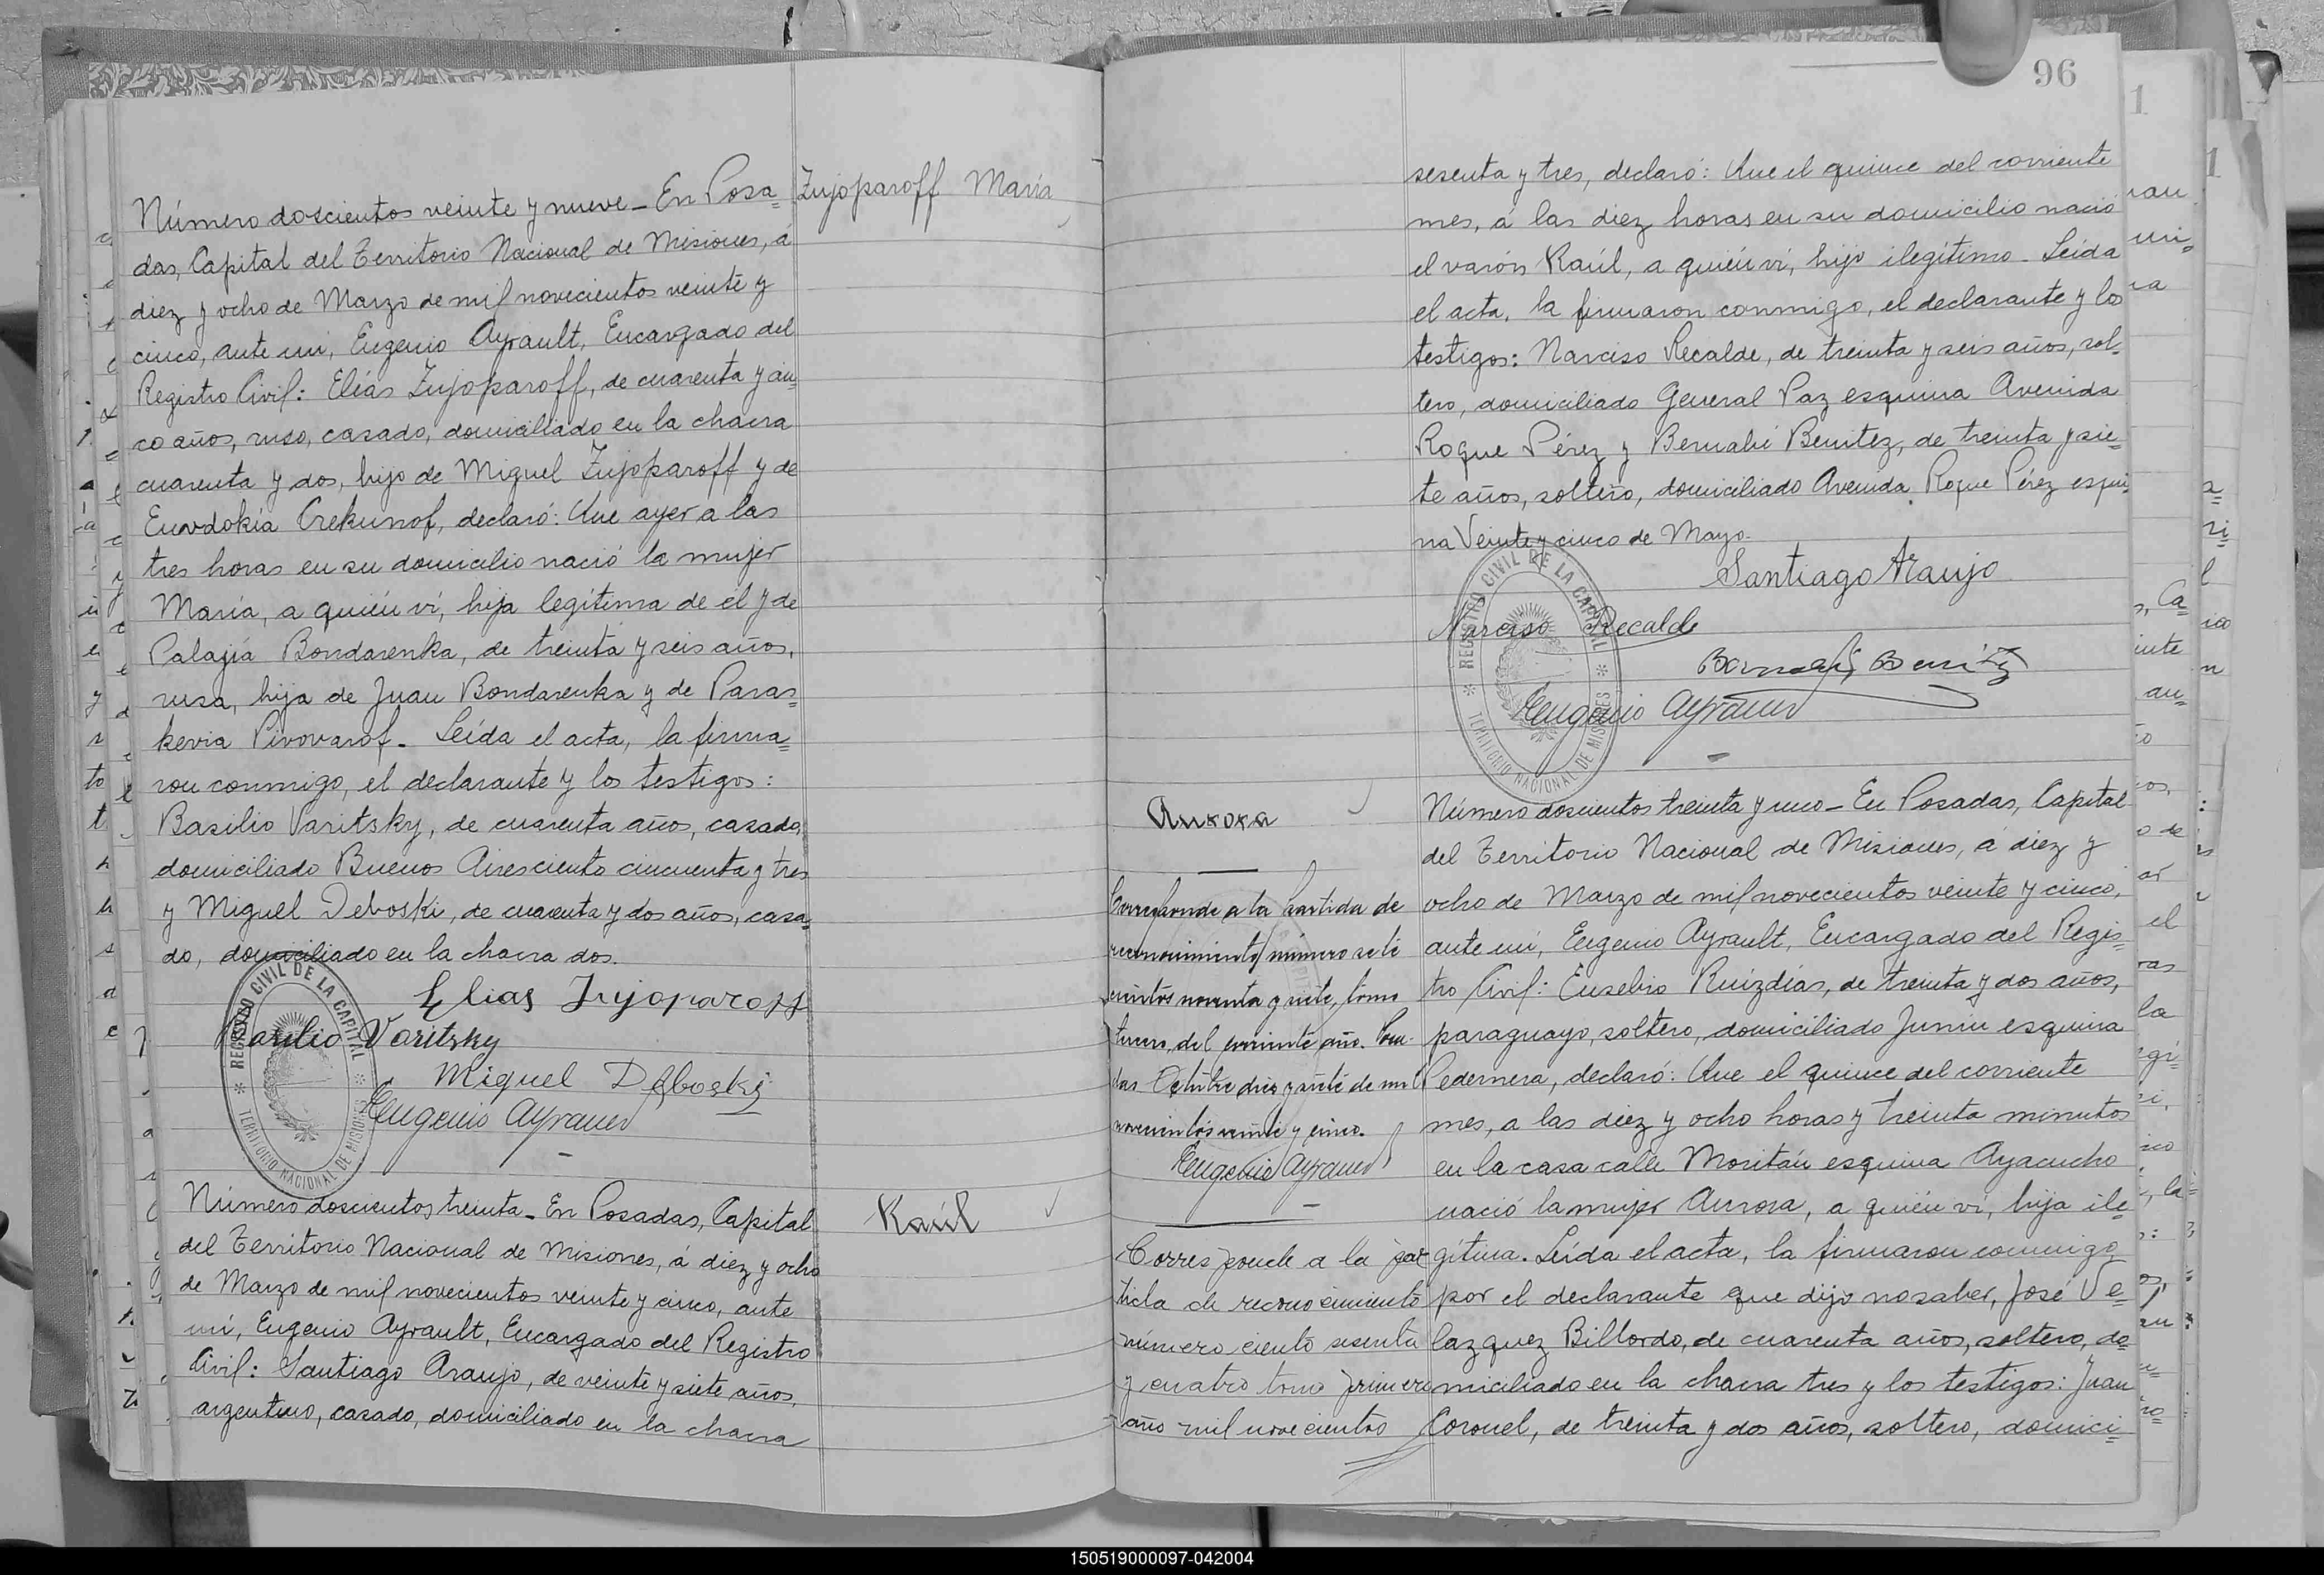 Número doscientos veinte y nueve - En Posa=
das, Capital del Territorio Nacional de Misiones, á
diez y ocho de Marzo de mil novecientos veinte y
cinco, ante mi, Eugenio Ayrault, Encargado del
Registro Civil: Elías Zujoparoff, de cuarenta y cin=
co años, ruso, casado, domiciliado en la chacra
cuarenta y dos, hijo de Miguel Zujoparoff y de
Euvdokia Crekunof, declaró: Que ayer a las
tres horas en su domicilio nació la mujer
María, a quién ví, hija legítima de él y de
Palajia Bondarenka, de treinta y seis años,
rusa, hija de Juan Bondarenka y de Paras=
kevia Pivovarof. Leída el acta, la firma=
ron conmigo, el declarante y los testigos:
Basilio Varitsky, de cuarenta años, casado,
domiciliado Buenos Aires ciento cincuenta y tres
y Miguel Deboski, de cuarenta y dos años, casa=
do, domiciliado en la chacra dos.
Elias Zujoparoff
Basilio Varitsky
Miguel Deboski
Eugenio Ayrault
REGISTRO CIVIL DE LA CAPITAL
* TERRITORIO NACIONAL DE MISIONES *
Zujoparoff María
Número doscientos treinta - En Posadas, Capital
del Territorio Nacional de Misiones, á diez y ocho
de Marzo de mil novecientos veinte y cinco, ante
mi, Eugenio Ayrault, Encargado del Registro
Civil: Santiago Araujo, de veinte y siete años,
argentino, casado, domiciliado en la chacra
Raúl
96
sesenta y tres, declaró: Que el quince del corriente
mes, á las diez horas en su domicilio nació
el varón Raúl, a quién ví, hijo ilegítimo - Leída
el acta, la firmaron conmigo, el declarante y los
testigos: Narciso Recalde, de treinta y seis años, sol=
tero, domiciliado General Paz esquina Avenida
Roque Pérez y Bernabé Benitez, de treinta y sie=
te años, soltero, domiciliado Avenida Roque Pérez esqui=
na Veinte y cinco de Mayo.
Santiago Araujo
Narciso Recalde
Bernabé Benitez
Eugenio Ayrault
REGISTRO CIVIL DE LA CAPITAL
* TERRITORIO NACIONAL DE MISIONES *
Aurora
Corresponde a la partida de
reconocimiento número sete
cientos noventa y siete, tomo
tercero, del corriente año. Posa-
das Octubre diez y siete de mil
novecientos veinte y cinco.
Eugenio Ayrault
Corresponde a la par
tida de reconocimiento
número ciento sesenta
y cuatro tomo primero
año mil novecientos
Número doscientos treinta y uno - En Posadas, Capital
del Territorio Nacional de Misiones, á diez y
ocho de Marzo de mil novecientos veinte y cinco,
ante mi, Eugenio Ayrault, Encargado del Regis=
tro Civil: Eusebio Ruizdías, de treinta y dos años,
paraguayo, soltero, domiciliado Junin esquina
Pedernera, declaró: Que el quince del corriente
mes, a las diez y ocho horas y treinta minutos
en la casa calle Moritán esquina Ayacucho
nació la mujer Aurora, a quién ví, hija ile=
gítima. Leída el acta, la firmaron conmigo,
por el declarante que dijo no saber, José Ve=
lazquez Billordo, de cuarenta años, soltero, do=
miciliado en la chacra tres y los testigos: Juan
Coronel, de treinta y dos años, soltero, domici=
150519000097-042004